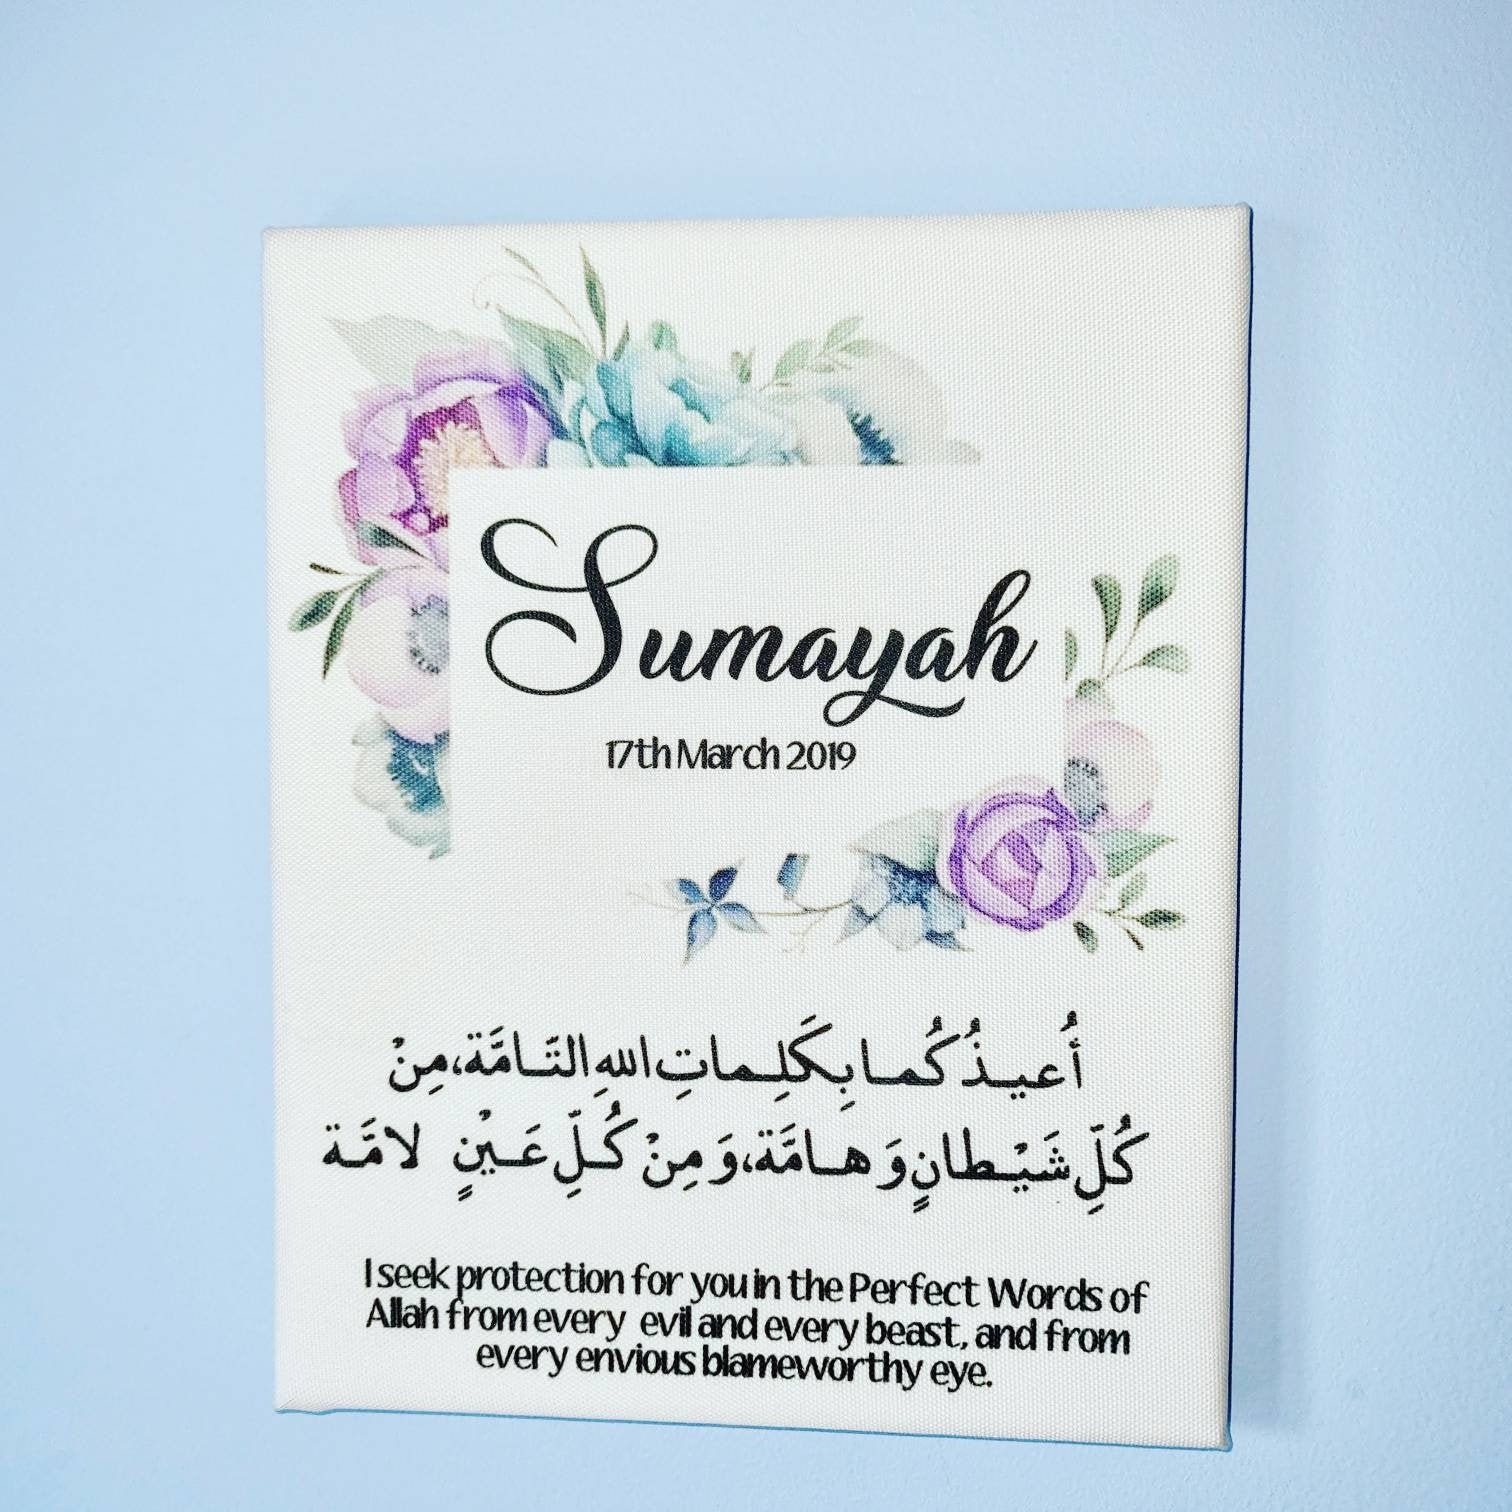 Sumayah
17th March 2019
أُعيـذُكُمـا بِكَلِـمـاتِ اللهِ التَـامَّة، مِنْ
كُلِّ شَيْـطانٍ وَهـامَّة، وَمِنْ كُـلِّ عَـيْنٍ لامَّـة
I seek protection for you in the Perfect Words of
Allah from every evil and every beast, and from
every envious blameworthy eye.